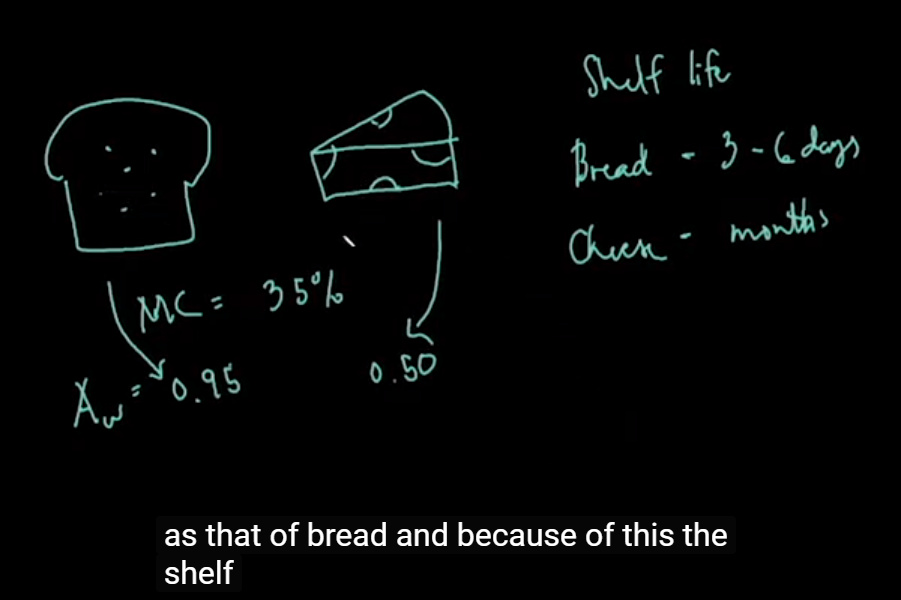 Shelf life
Bread - 3 - 6 days
Cheese - months
MC = 35%
Aw = 0.95
0.50
as that of bread and because of this the
shelf